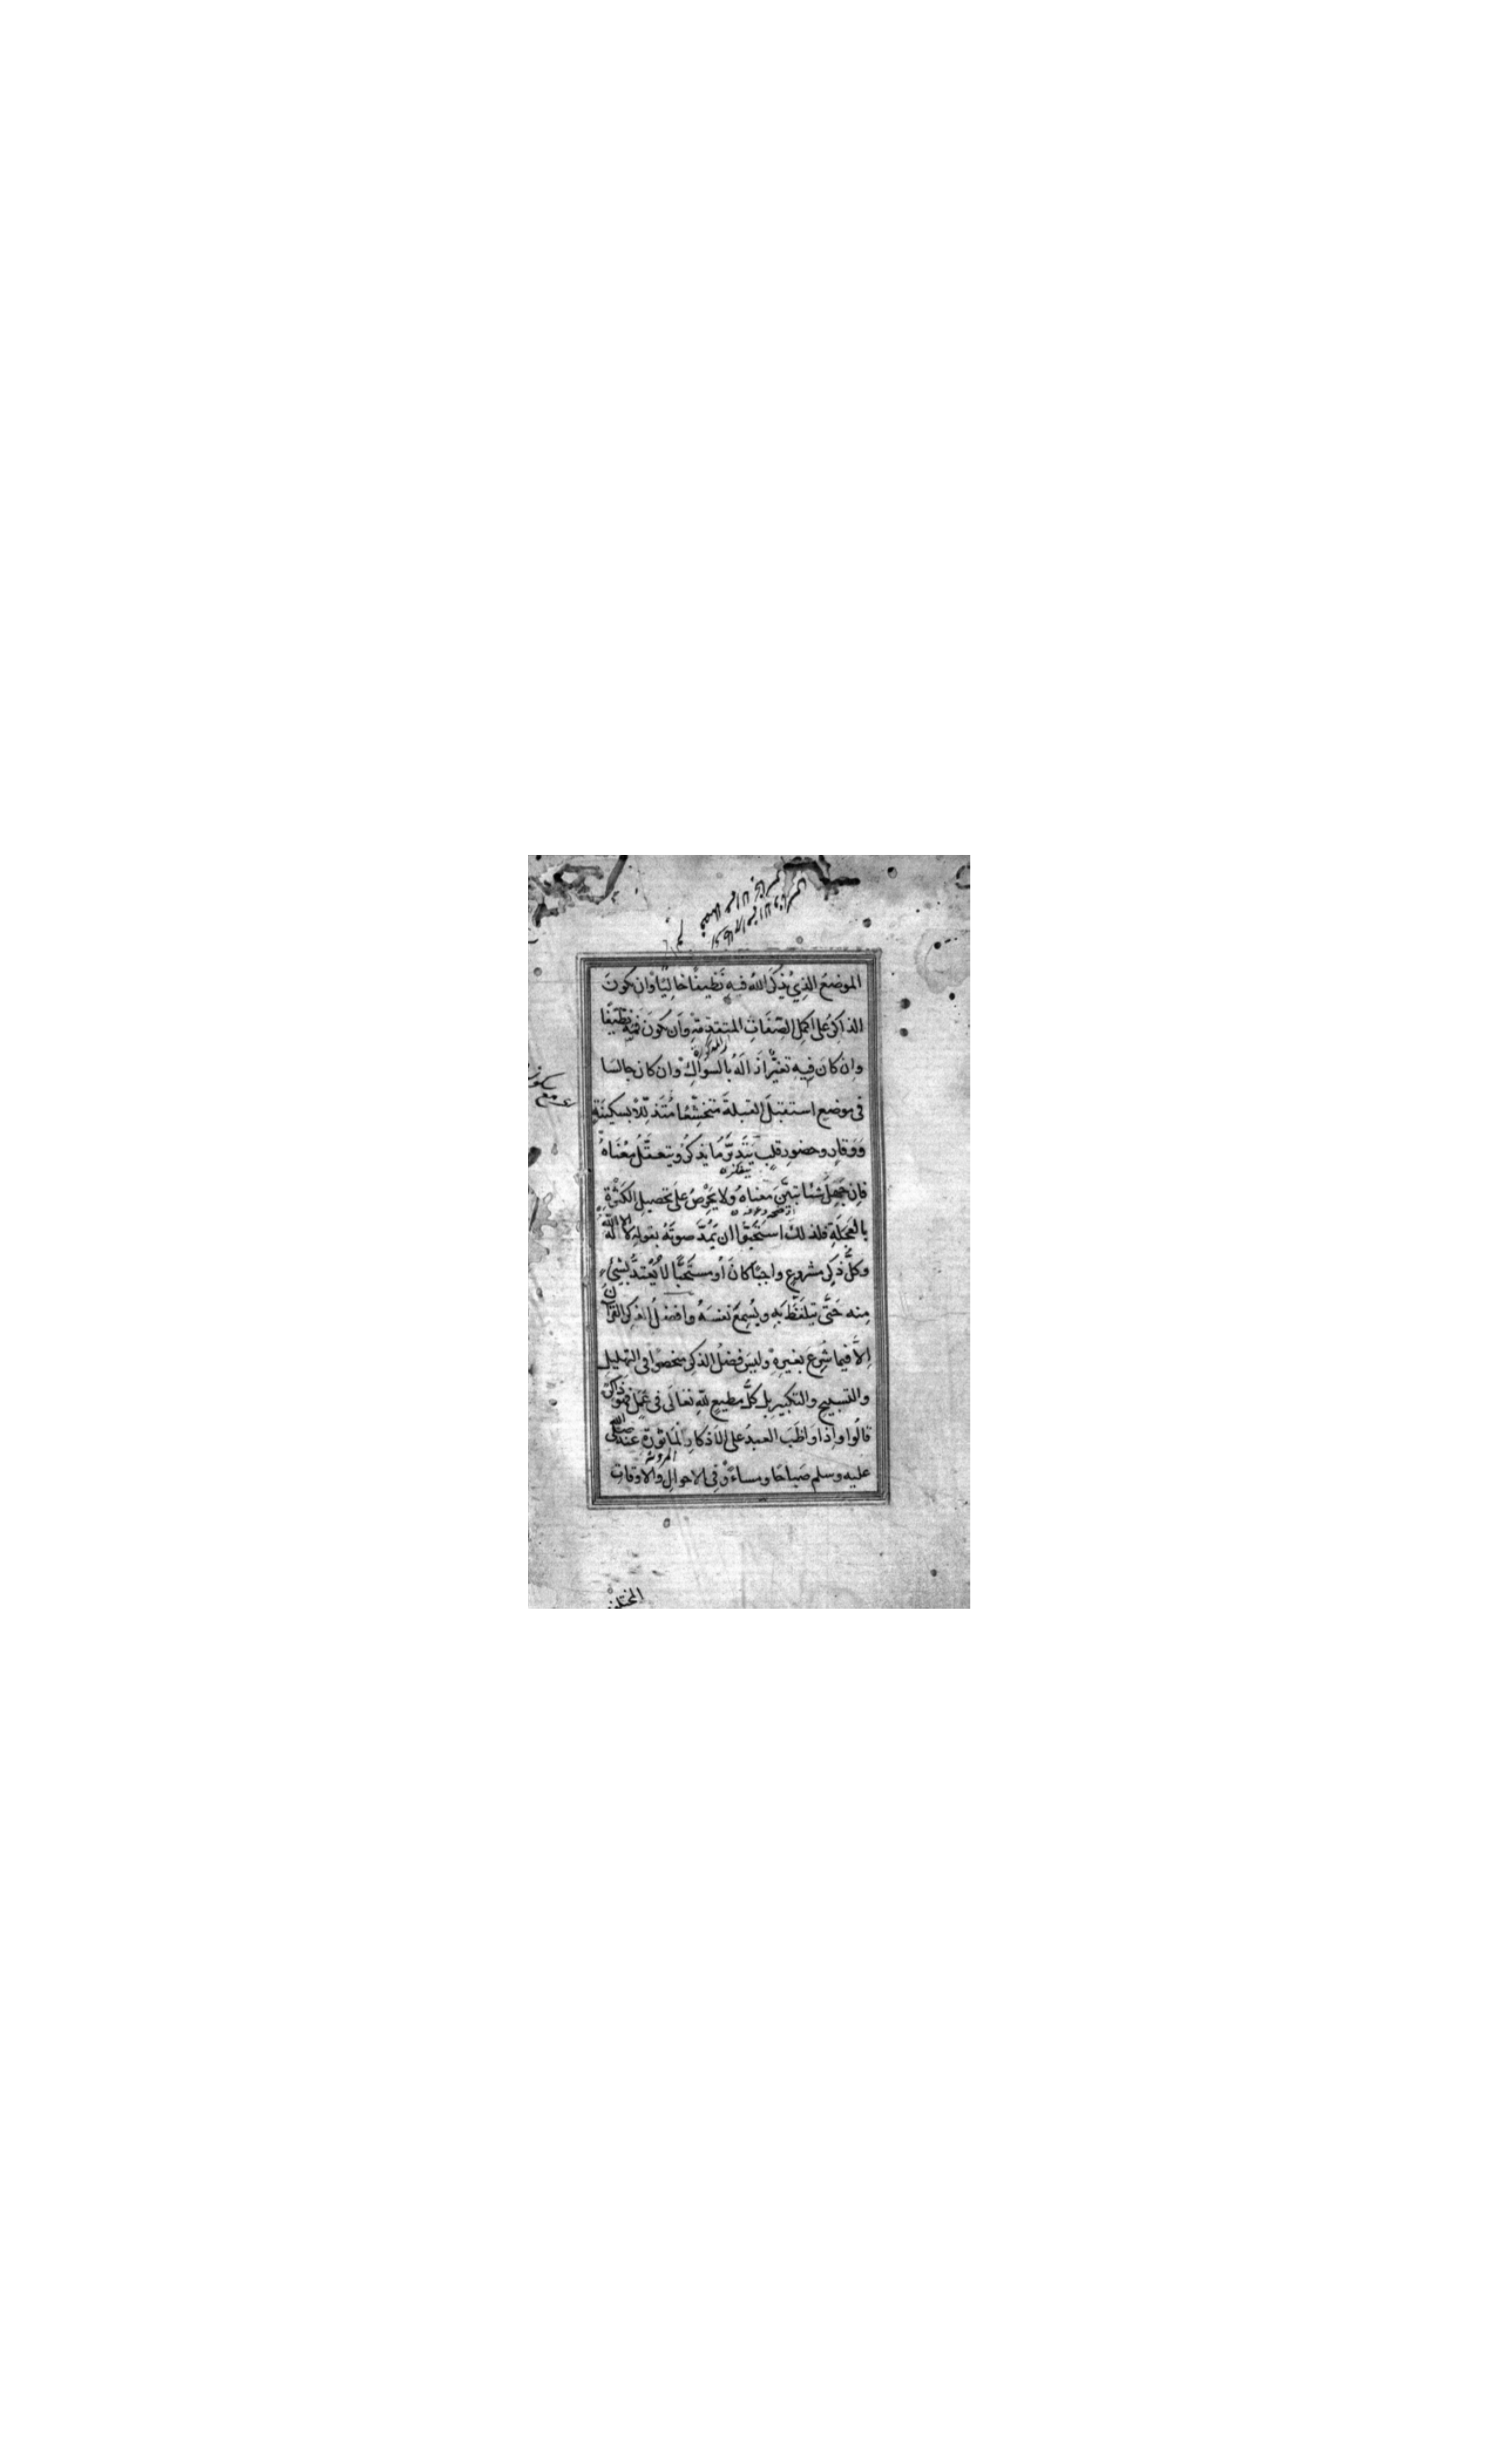 الموضعُ الذِي يُذكَرُ اللهُ فيهِ نَظيفًا خالِيًا وان يكونَ
الذاكِرُ على اكملِ الصّفَاتِ المتقدِّمةِ وَاَن يكونَ فمُهُ نظيفًا
المذكورة
وان كانَ فيهِ تغيُّرٌ ازالَهُ بالسواكِ وان كان جالسًا
في موضعٍ استقبلَ القبلةَ متخشِّعًا مُتَذلِّلاً بسكينَةٍ
وَوقارٍ وحضورِ قلبٍ يتَدبَّرُ ما يذكرُ ويتعقَّلُ معْنَاهُ
يتفكر
فاِن جَهِلَ شيئا تبيَّنَ معناهُ ولا يَحْرِصُ على تحصيلِ الكَثْرةِ
بالعجَلَةِ فلذلك استَحَبُّوا ان يَمُدَّ صوتَهُ بقولِهِ لا اله الا الله
وكلُّ ذكرٍ مشروعٍ واجبًا كانَ أو مستَحَبًّا لا يُعْتدُّ بشيءٍ
مِنه حَتَّى يتلفَّظَ بهِ ويُسْمِعَ نفسَهُ وافضلُ الذكرِ القرآن
اِلاَّ فيما شُرِعَ بغيرِهِ وليسَ فضلُ الذكرِ منحصرًا في التهليل
والتسبيحِ والتكبيرِ بل كلُّ مطيعٍ للهِ تعَالَى في عَمَلٍ فهوَ ذاكرٌ
قالُوا واِذا وَاظَبَ العبدُ على الأذكارِ المأثورةِ عنهُ صلى الله
المروية
عليه وسلم صَباحًا ومساءً وفي الاحوالِ والاوقاتِ
المختلفة